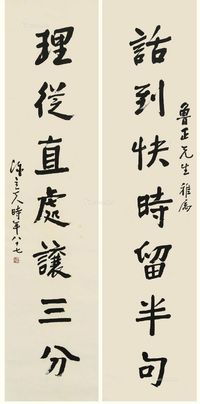 魯正先生雅屬
話到快時留半句
理從直處讓三分
陳立夫時年八十七